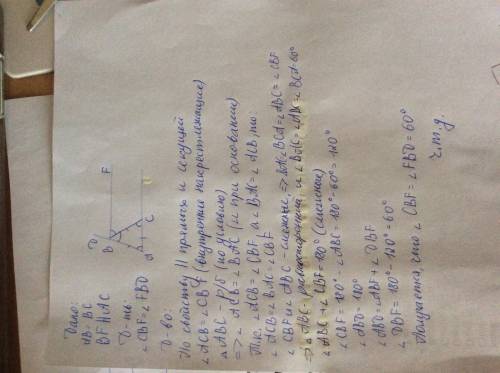 Дано:
AB = BC
BF ∥ AC
D
B
F
A
C
Д-ть:
∠CBF = ∠FBD
Д-во:
По свойству ∥ прямых и секущей
∠ACB = ∠CBF (внутренние накрестлежащие)
△ABC - р/б (по условию)
=> ∠ACB = ∠BAC (и при основании)
Т.к. ∠ACB = ∠CBF а ∠BAC = ∠ACB, то:
∠ACB = ∠BAC = ∠CBF
∠CBF и ∠ABC - смежные, => ∠ABC = ∠CBF
=> △ABC - равносторонний, и ∠BAC = 60°
∠ABC + ∠CBF = 180° (смежные)
∠CBF = 180° - ∠ABC = 180° - 60° =
∠ABD = 180°
∠ABD = ∠ABF + ∠DBF
∠DBF = 180° - 120° = 60°
Получается, что ∠CBF = ∠FBD = 60°
ч.т.д.